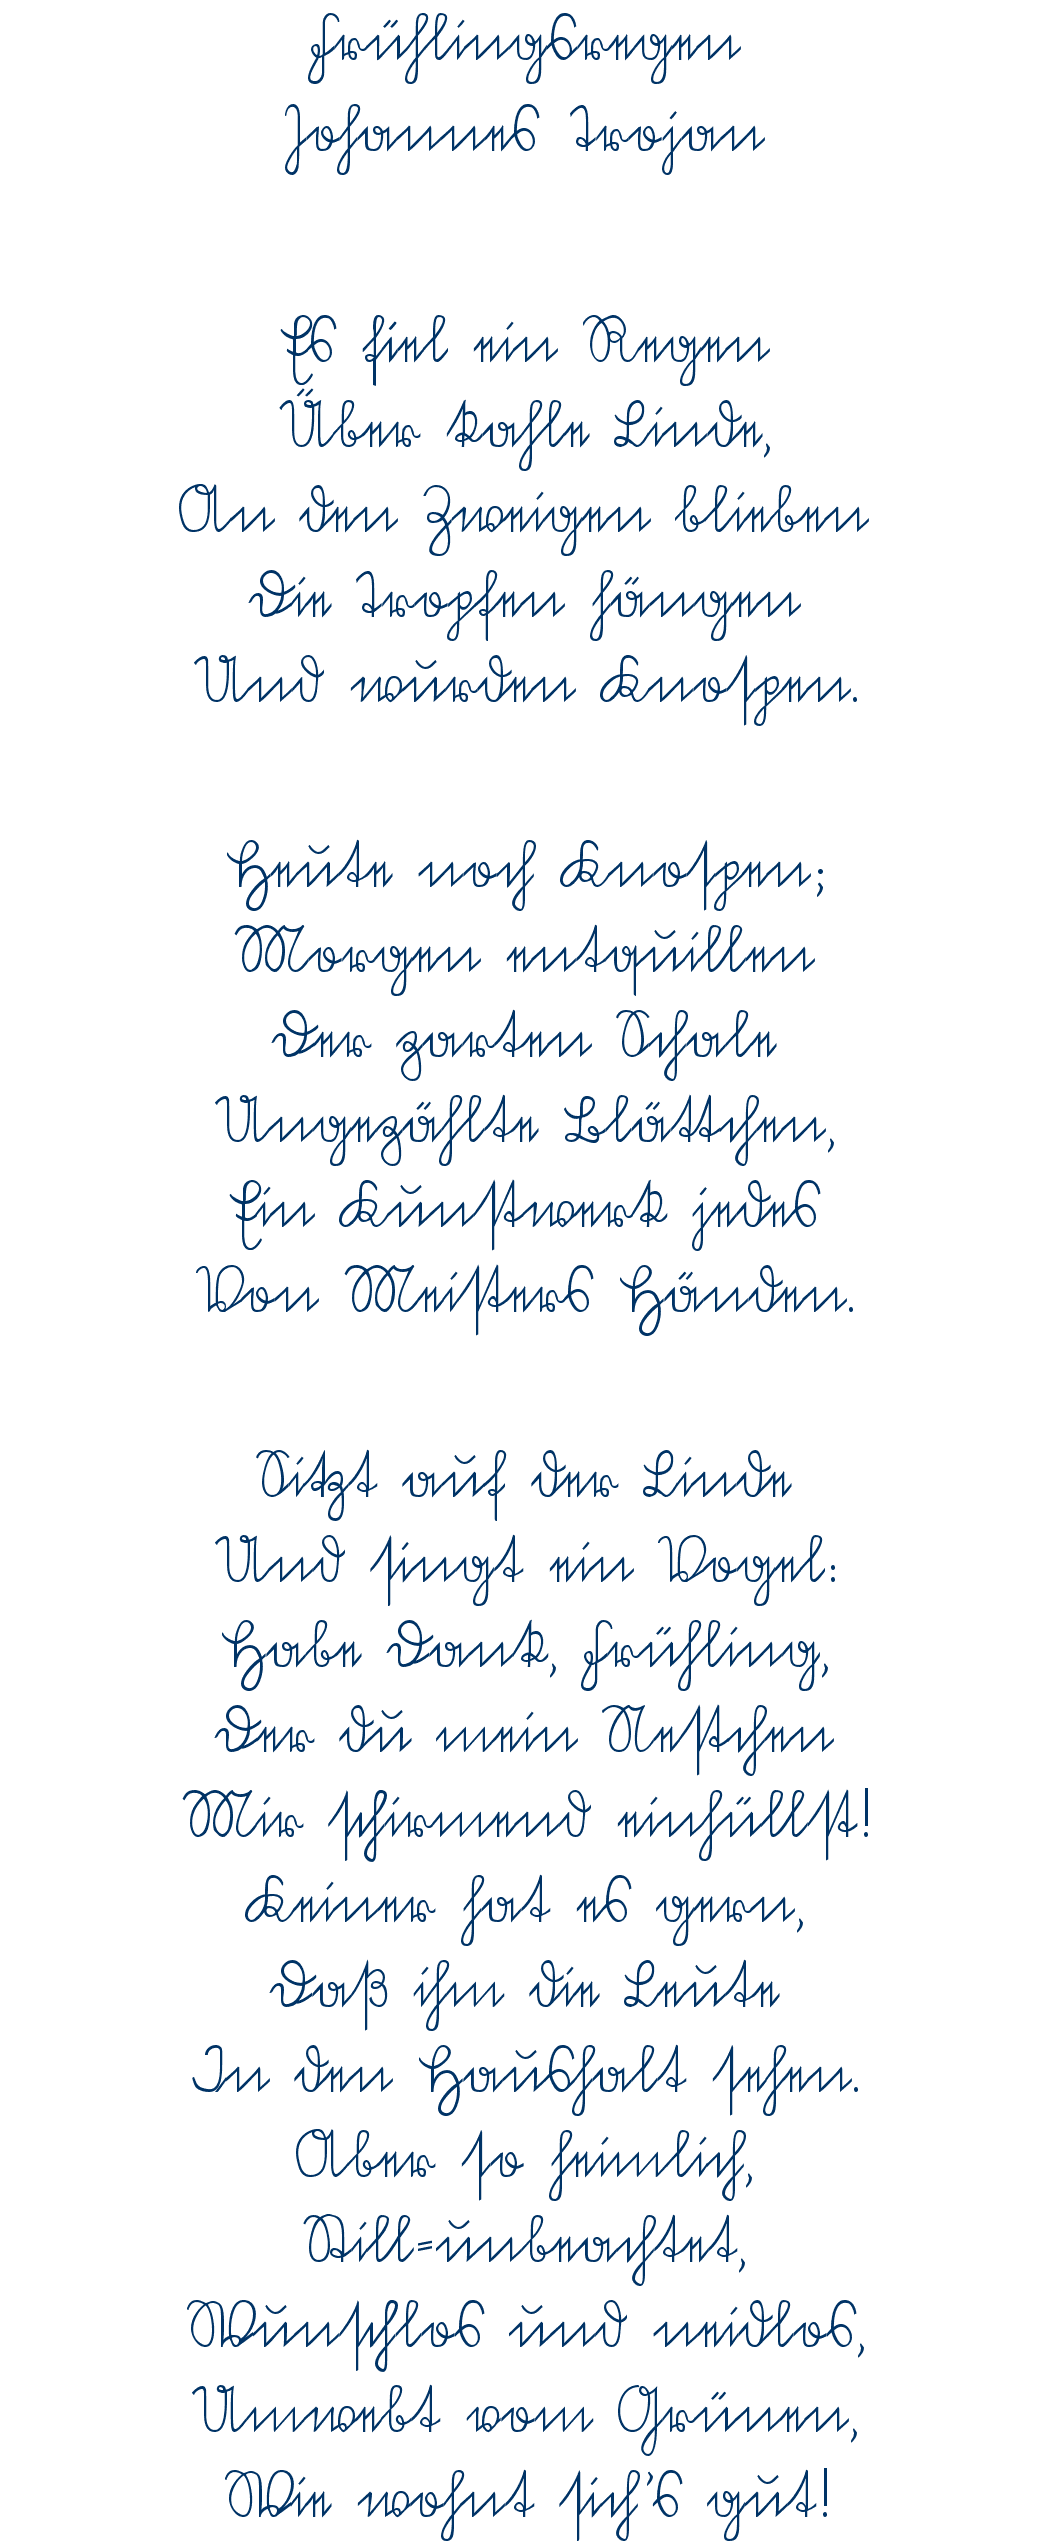 Frühlingsregen
Johannes Trojan
Es fiel ein Regen
Über kahle Linde,
An den Zweigen blieben
Die Tropfen hängen
Und wurden Knospen.
Heute noch Knospen;
Morgen entquillen
Der zarten Schale
Ungezählte Blättchen,
Ein Kunstwerk jedes
Von Meisters Händen.
Sitzt auf der Linde
Und singt ein Vogel:
Habe Dank, Frühling,
Der du mein Nestchen
Mir schirmend einhüllst!
Keiner hat es gern,
Daß ihm die Leute
In den Haushalt sehen.
Aber so heimlich,
Still-unbeachtet,
Wunschlos und neidlos,
Umwebt vom Grünen,
Wie wohnt sich's gut!